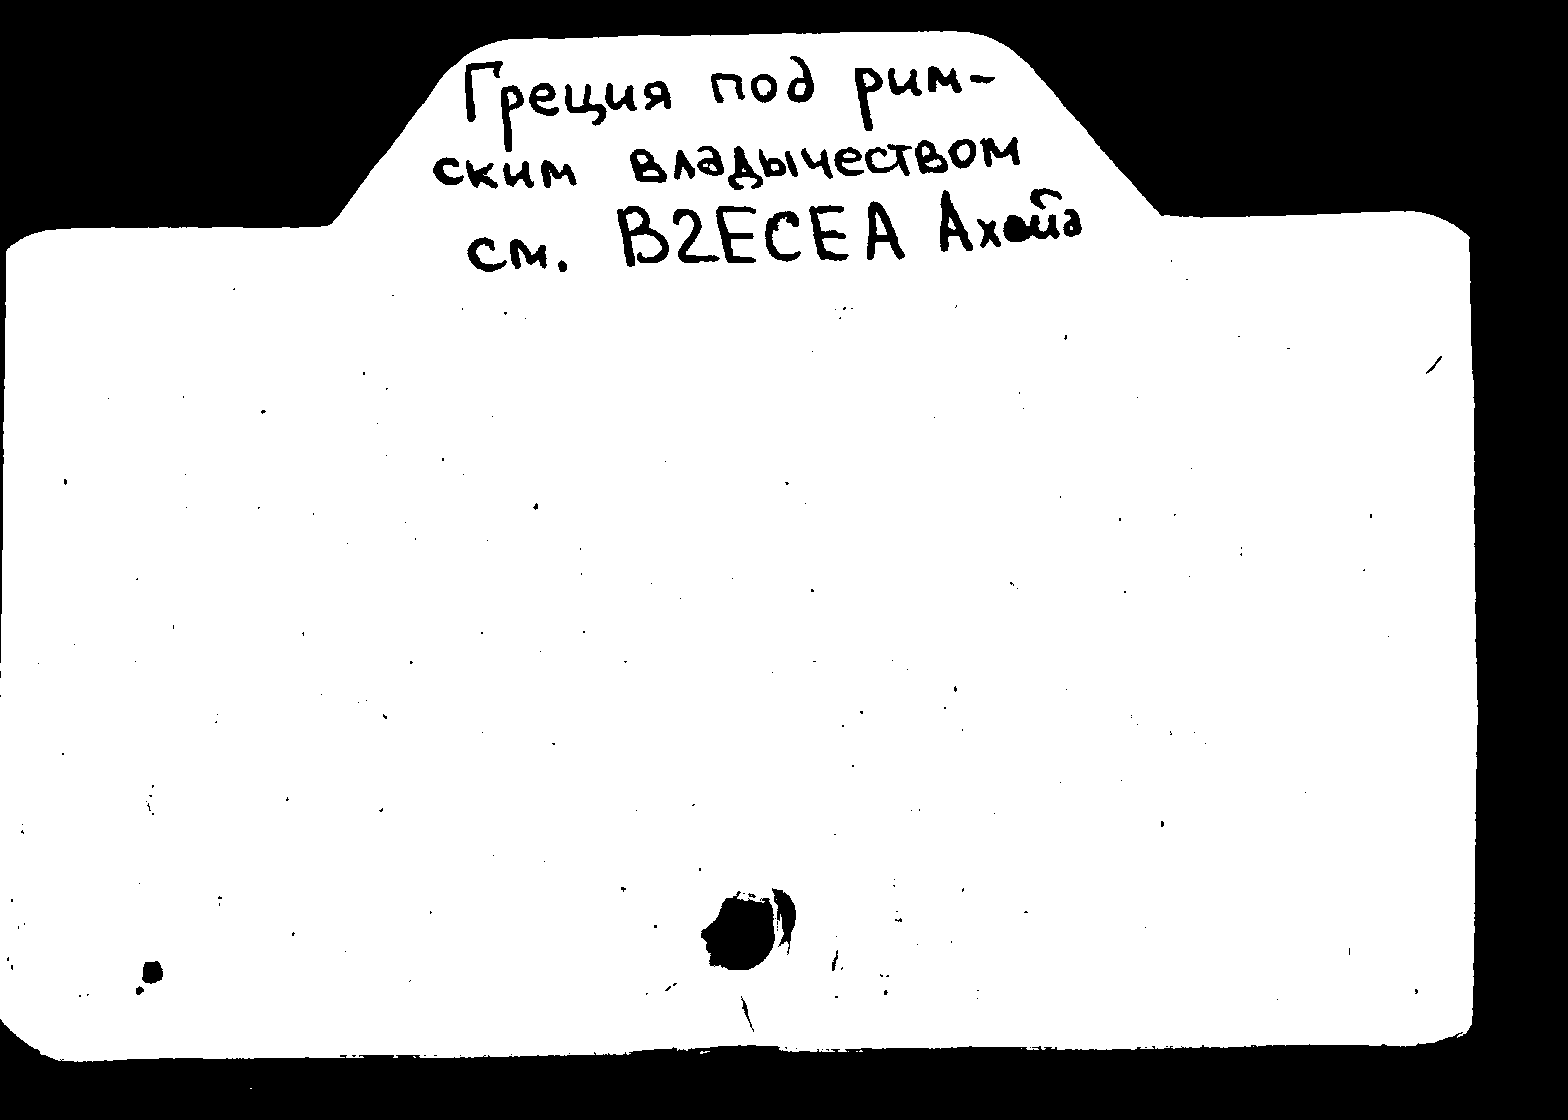 Греция под рим-
ским владычеством
см. В2ЕСЕА Ахейа